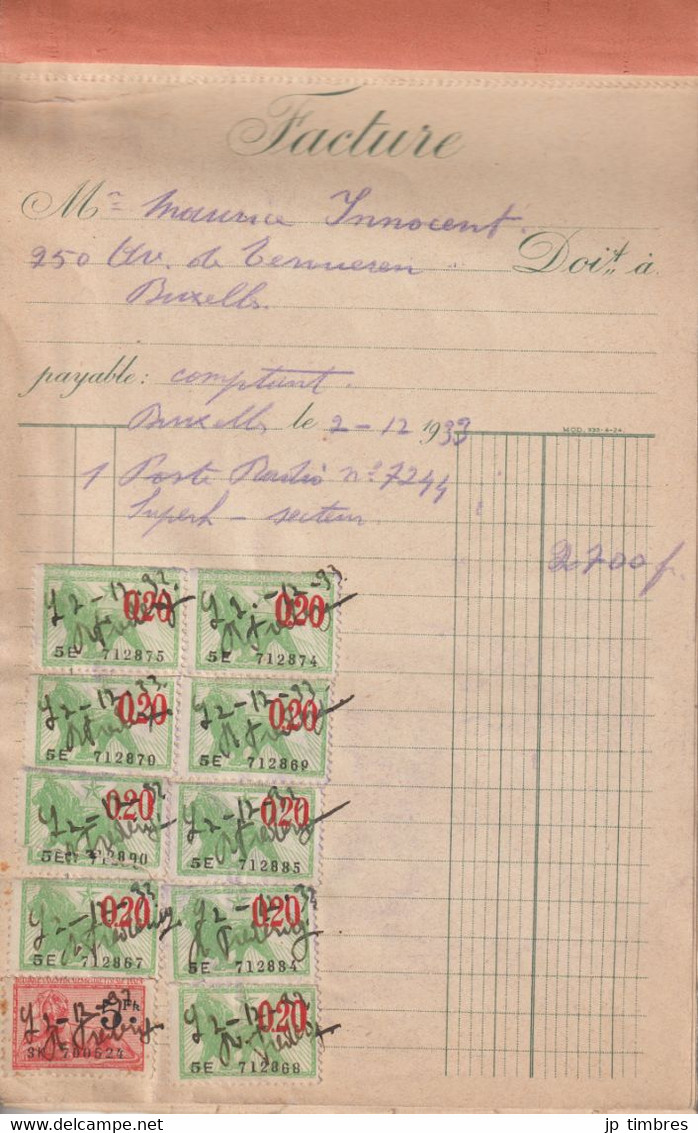 Facture
Mr Maurice Innocent.
250 Av. de Tervueren Doit à
Bruxelles
payable: comptant.
Bruxelles, le 2-12 1933
MOD. 
1 Poste Radio nº 7244
Superh - secteur
2.700 fr
0.20 0.20
5E 712875 5E 712874
0.20 0.20
5E 712870 5E 712869
0.20 0.20
5E 712890 5E 712885
0.20 0.20
5E 712867 5E 712884
5 Fr 0.20
3K 700524 5E 712868
www.delcampe.net jp_timbres